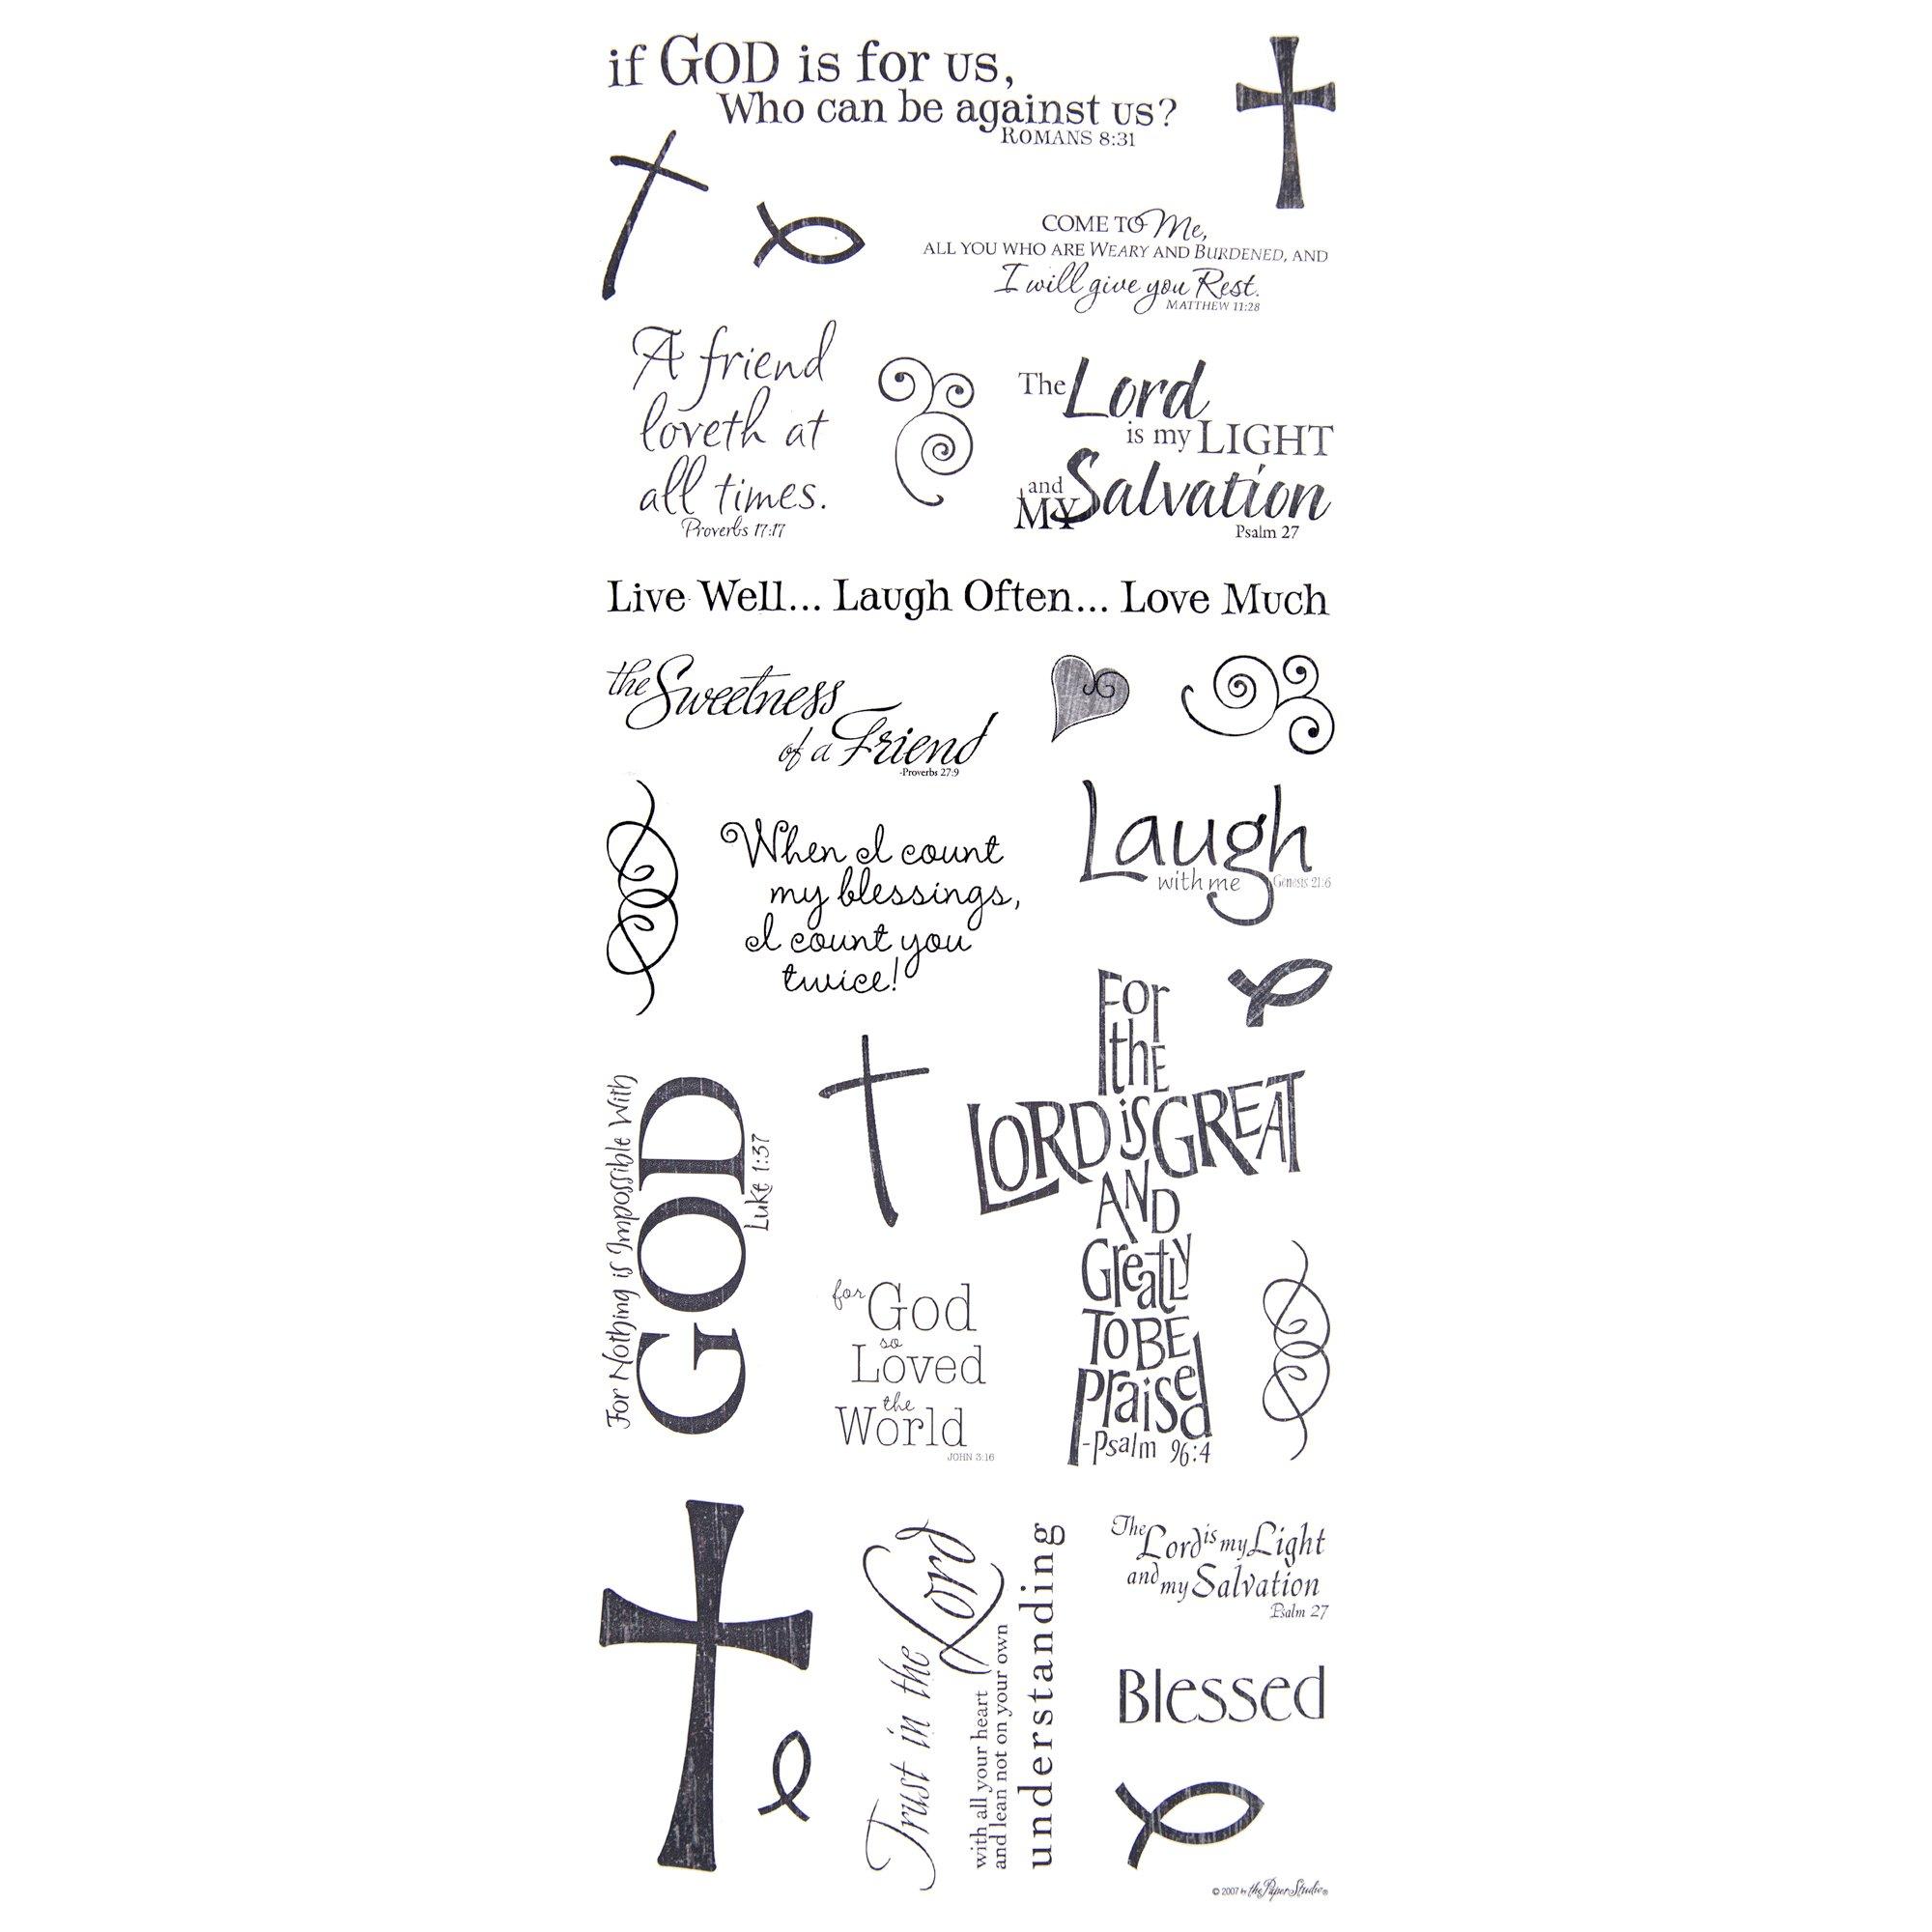 if GOD is for us,
Who can be against us?
ROMANS 8:31
COME TO Me,
ALL YOU WHO ARE WEARY AND BURDENED, AND
I will give you Rest.
MATTHEW 11:28
A friend
loveth at
all times.
Proverbs 17:17
The Lord
is my LIGHT
and
MY Salvation
Psalm 27
Live Well... Laugh Often... Love Much
the Sweetness
of a Friend
-Proverbs 27:9
When I count
my blessings,
I count you
twice!
Laugh
with me Genesis 21:6
For Nothing is Impossible With
GOD
Luke 1:37
For
the
LORD is GREAT
AND
Greatly
TO BE
Praised
-Psalm 96:4
for God
so
Loved
the
World
JOHN 3:16
Trust in the Lord
with all your heart
and lean not on your own
understanding
The Lord is my Light
and my Salvation
Psalm 27
Blessed
© 2007 by the Paper Studio®